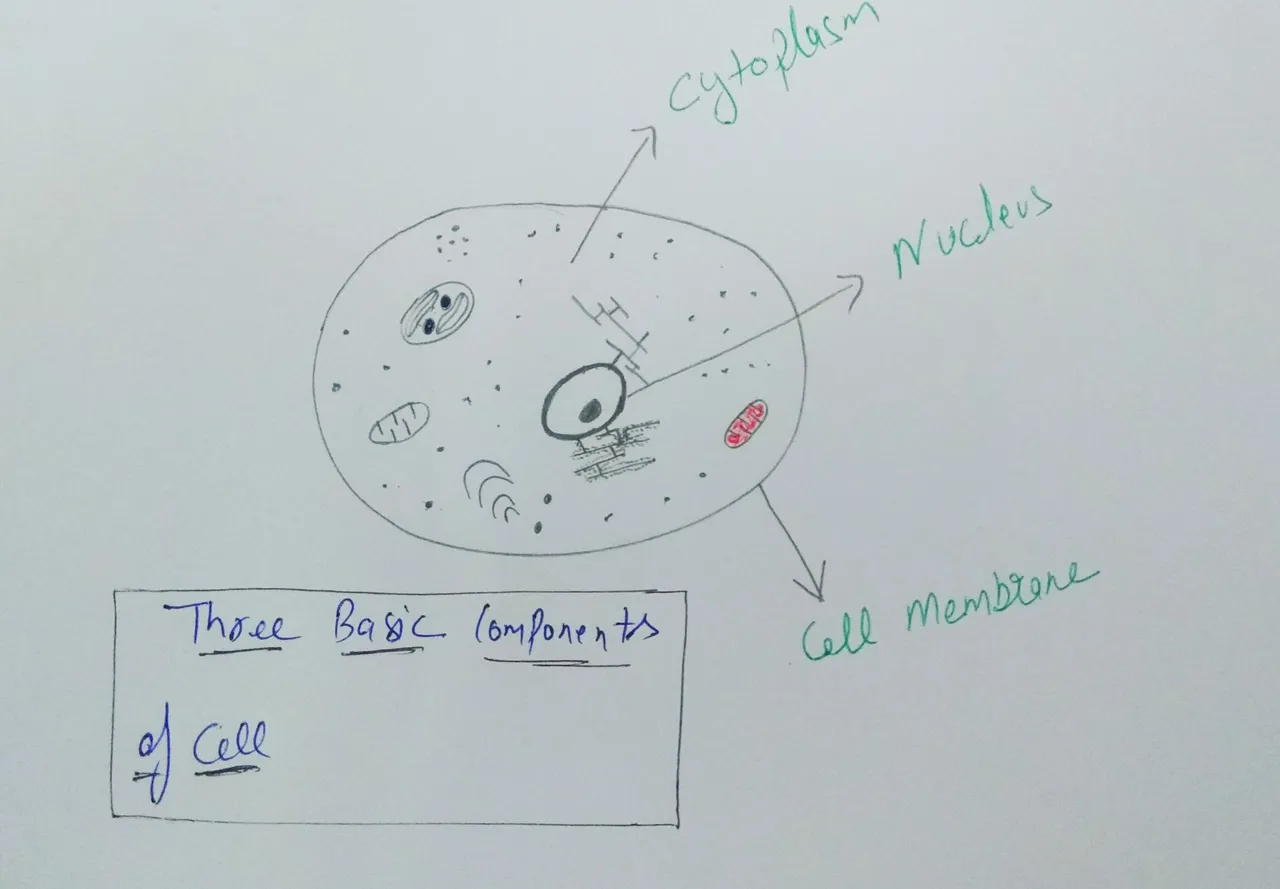 Cytoplasm
Nucleus
Cell Membrane
Three Basic Components
of Cell